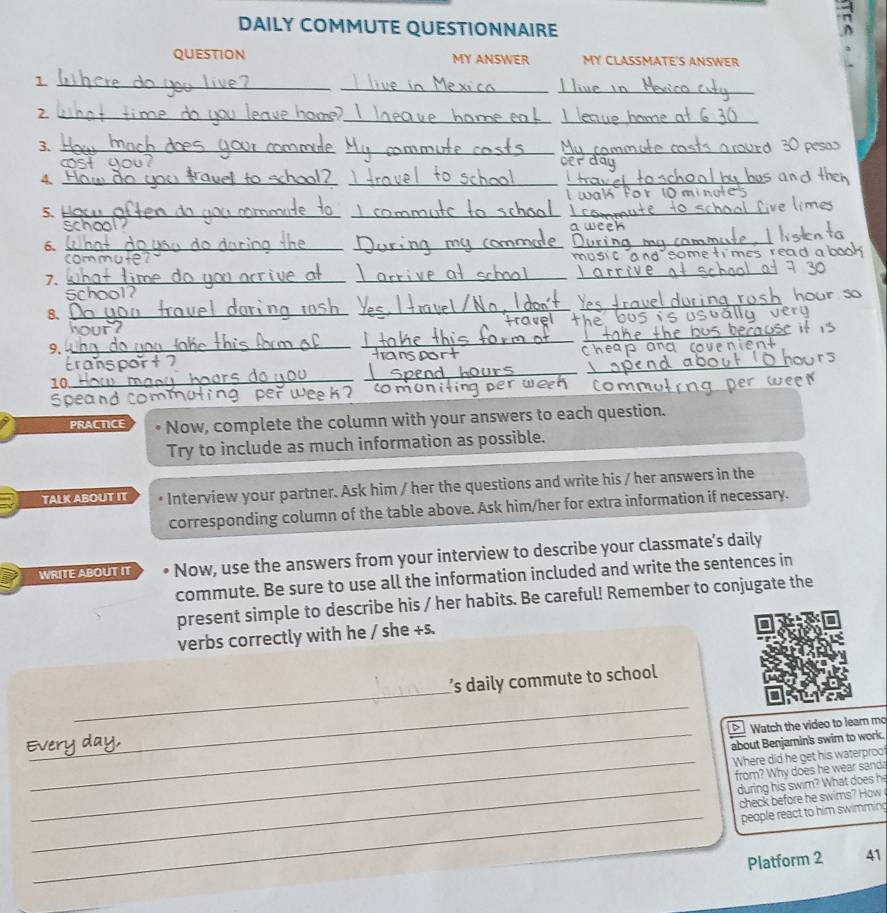 DAILY COMMUTE QUESTIONNAIRE
QUESTION MY ANSWER MY CLASSMATE'S ANSWER
1. Where do you live? I live in Mexica I live in Mexico city
2. What time do you leave home? I lneave home eat I leave home at 6:30
3. How mach does your commde My commute costs My commute costs around 30 pesos
cost you? per day
4. How do you travel to school? I travel to school I travel to school by bus and then
I walk for 10 minutes
5. How often do you commute to I commute to school I commute to school five limes
school? a week
6. What do you do doring the During my commute During my commute, I listen to
commute? music and sometimes read a book
7. What time do you arrive at I arrive at school I arrive at school at 7 30
School?
8. Do you travel daring rosh Yes, I travel/No, I don't Yes, travel during rosh hour so
hour? travel the bus is usually very
9. Why do you take this form of I take this form of I take the bus because it is
transport? transport cheap and covenient
10. How many hoors do you I spend hours I spend about 10 hours
speand commuting per week? comoniting per week commuting per week
PRACTICE • Now, complete the column with your answers to each question.
Try to include as much information as possible.
TALK ABOUT IT • Interview your partner. Ask him / her the questions and write his / her answers in the
corresponding column of the table above. Ask him/her for extra information if necessary.
WRITE ABOUT IT • Now, use the answers from your interview to describe your classmate's daily
commute. Be sure to use all the information included and write the sentences in
present simple to describe his / her habits. Be careful! Remember to conjugate the
verbs correctly with he / she +s.
's daily commute to school
Every day,
Watch the video to learn mo
about Benjamin's swim to work.
Where did he get his waterproof
from? Why does he wear sanda
during his swim? What does he
check before he swims? How
people react to him swimming
Platform 2 41